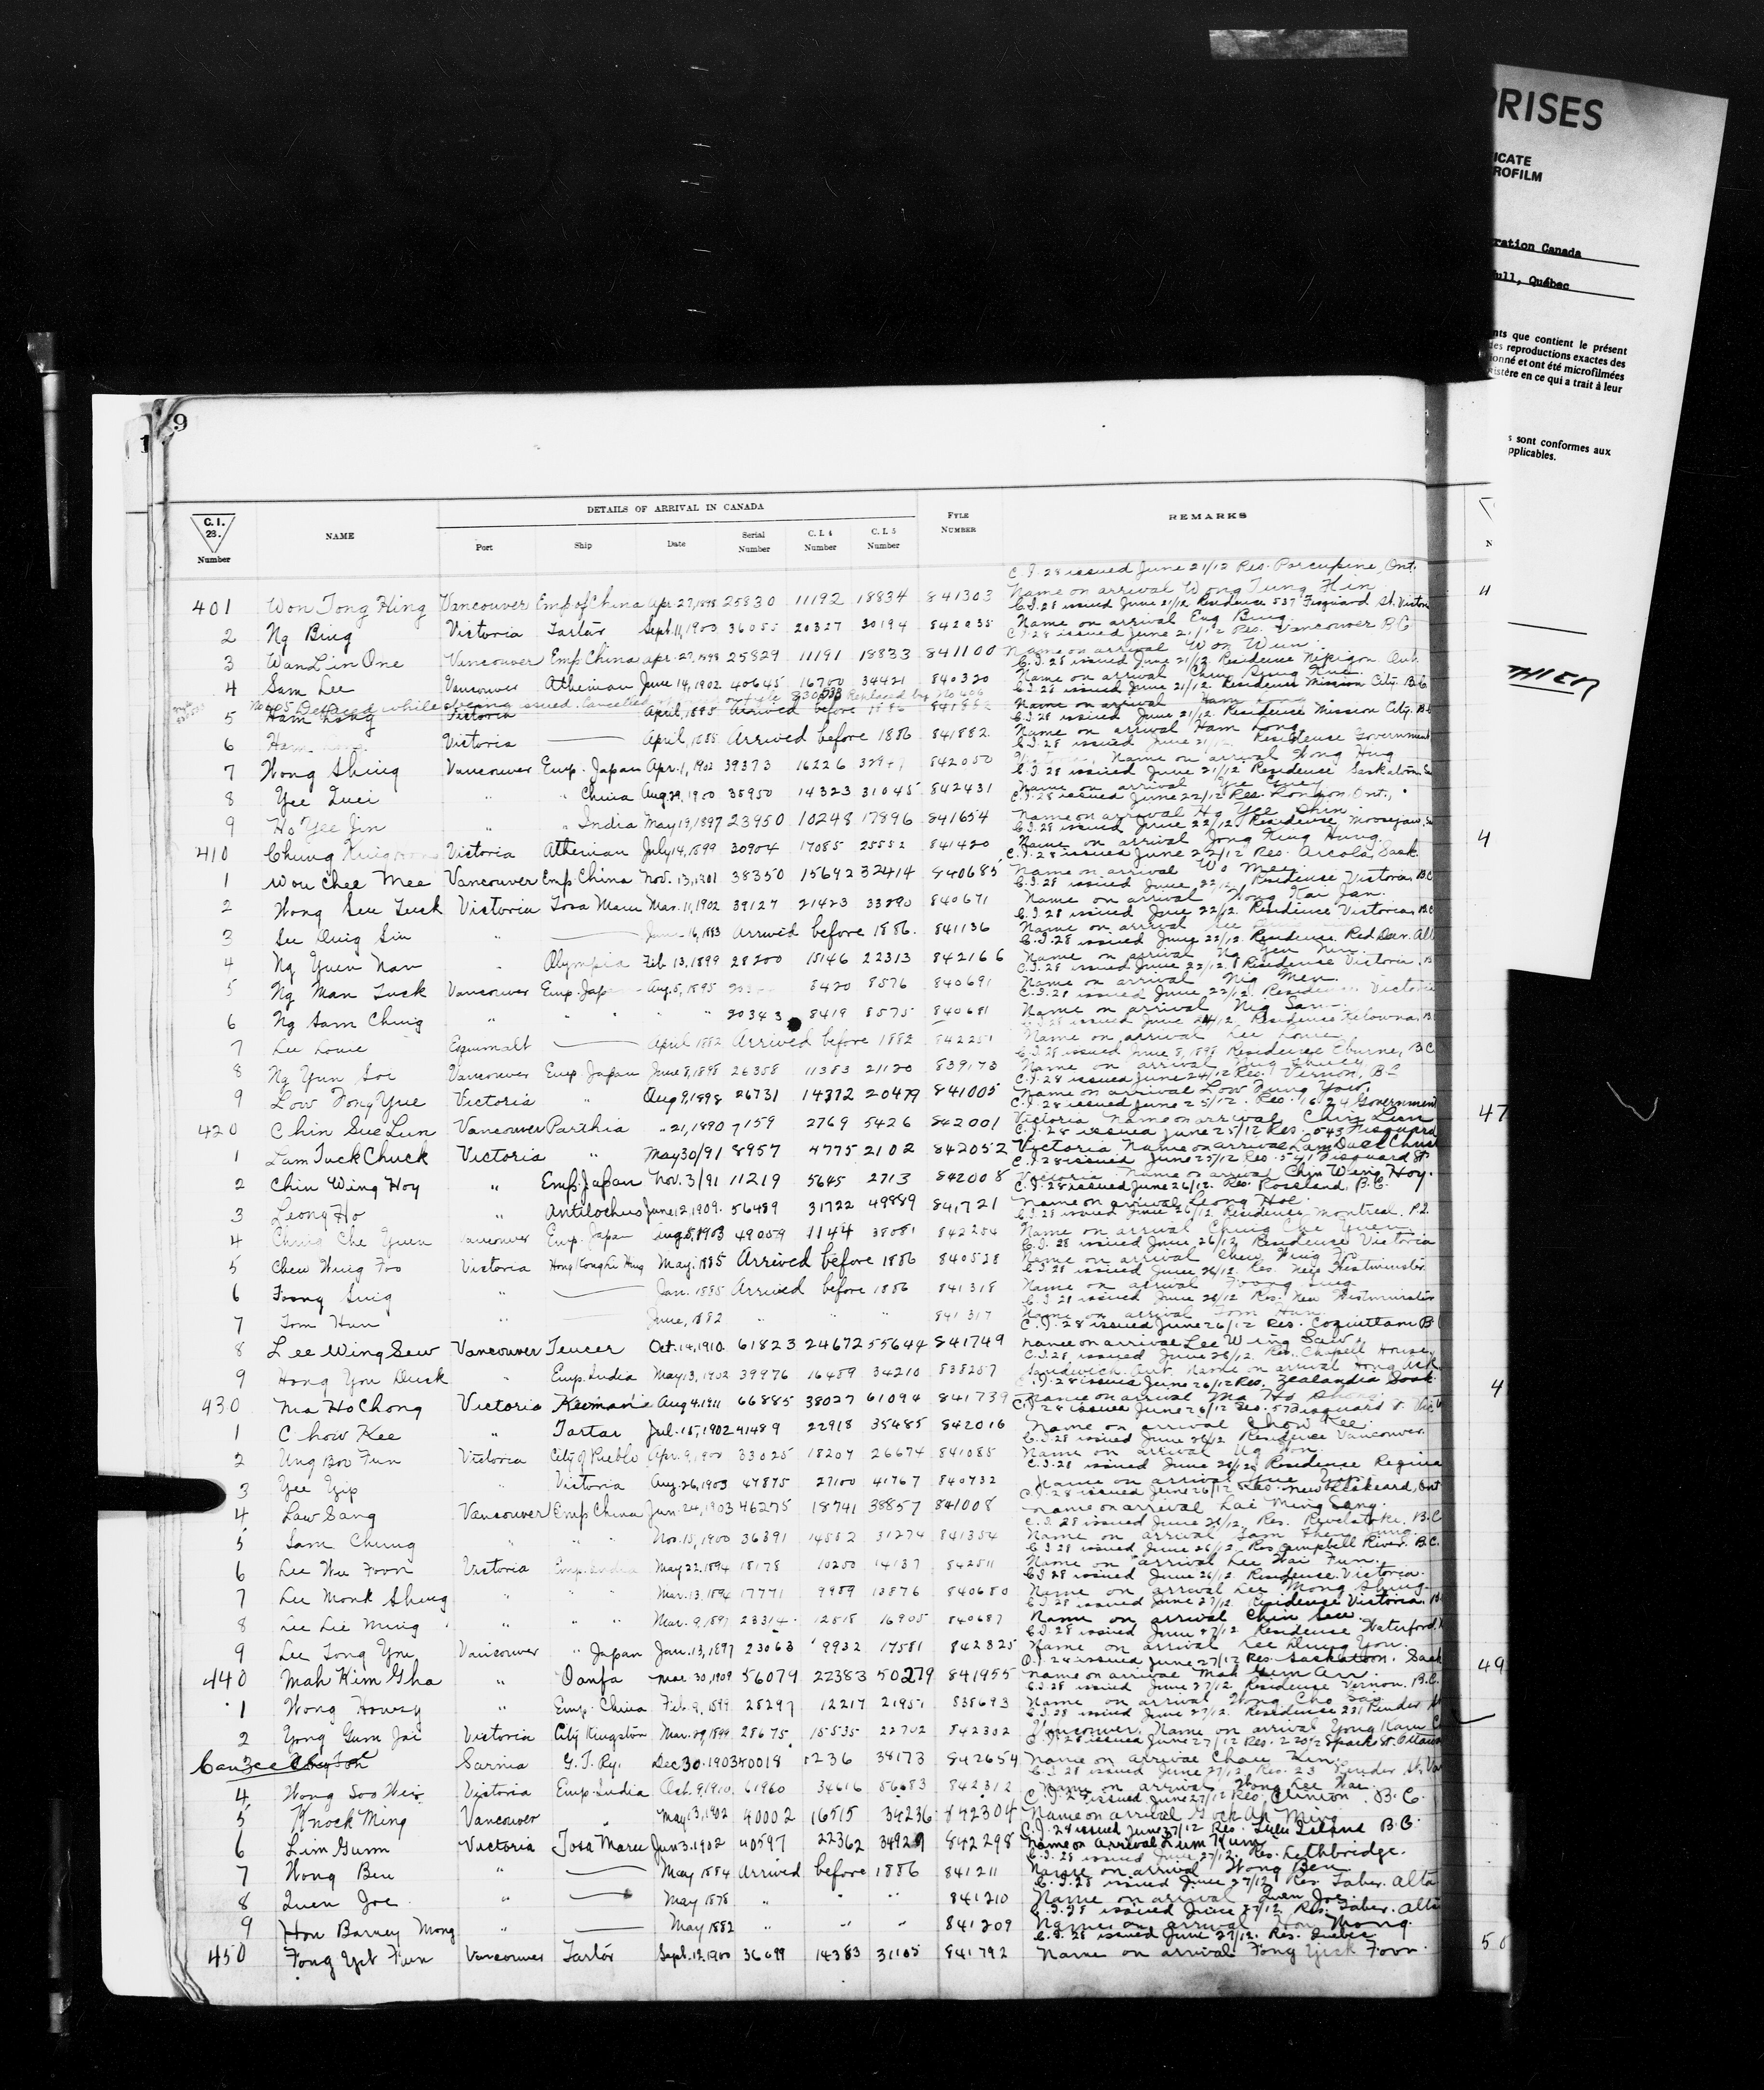 PRISES
ICATE
ROFILM
ration Canada
ull, Québec
nts que contient le présent
des reproductions exactes des
ionné et ont été microfilmées
istère en ce qui a trait à leur
s sont conformes aux
pplicables.
9
1
DETAILS OF ARRIVAL IN CANADA
C.I. 28. Number NAME Port Ship Date Serial Number C.I.4 Number C.I.5 Number FYLE NUMBER REMARKS
C.I.28 issued June 21/12 Res. Porcupine, Ont.
401 Won Tong Hing Vancouver Emp of China Apr. 27, 1898 25830 11192 18834 841303 Name on arrival Wong Tung Hin.
C.I.28 issued June 21/12 Residence 537 Fisguard St. Victoria
2 Ng Bing Victoria Tartar Sept. 11, 1900 36055 20327 30194 842035 Name on arrival Eng Bing
C.I.28 issued June 21/12 Res. Vancouver BC
3 Wan Lin One Vancouver Emp China Apr. 27, 1898 25829 11191 18833 841100 Name on arrival Won Wun
C.I.28 issued June 21/12 Residence Nipigon Ont.
4 Sam Lee Vancouver Athenian June 14, 1902 40645 16700 34421 840320 Name on arrival
C.I.28 issued June 21/12 Residence Mission City B.C.
No 405 Defaced while being issued. Cancelled Replaced by No 406
5 Ham Long Victoria April, 1885 Arrived before 1886 841882 Name on arrival Ham
C.I.28 issued June 21/12. Residence Mission City. B.C
6 Ham Victoria April, 1885 Arrived before 1886 841882 Name on arrival Ham Long
C.I.28 issued June 21/12. Residence Government
7 Wong Shing Vancouver Emp. Japan Apr. 1, 1902 39373 16226 842050 Name on arrival Wong Hing
C.I.28 issued June 21/12 Residence Saskatoon
8 Yee Quei " " China Aug. 29, 1900 35950 14323 31045 842431 Name on arrival Yee
C.I.28 issued June 22/12 Res. London, Ont.
9 Ho Yee Jin " " India May 19, 1897 23950 10248 17896 841654 Name on arrival Ho Yee Shin
C.I.28 issued June 22/12 Residence Moosejaw,
410 Chung King Victoria Athenian July 14, 1899 30904 17085 25552 841420 Name on arrival Jong King Hung.
C.I.28 issued June 22/12 Res. Arcola, Sask.
1 Wou Chee Mee Vancouver Emp China Nov. 13, 1901 38350 15692 32414 840685 Name on arrival Wo Mee
C.I.28 issued June 22/12 Residence Victoria, BC
2 Wong Seu Tuck Victoria Tosa Maru Mar. 11, 1902 39127 21423 33290 840671 Name on arrival Wong Kai Jan.
C.I.28 issued June 22/12. Residence Victoria, B.C
3 See Quig Sin " June 16, 1883 Arrived before 1886. 841136 Name on arrival See
C.I.28 issued June 22/12. Residence Red Deer. Alt
4 Ng Yuen Nan Olympia Feb 13, 1899 28200 15146 22313 842166 Name on arrival Ng Yen Nin
C.I.28 issued June 22/12. Residence Victoria
5 Ng Man Tuck Vancouver Emp. Jap Aug. 5, 1895 8420 8576 840691 Name on arrival Nig Men
C.I.28 issued June 22/12. Residence Victoria
6 Ng Sam Ching " " " " 20343 8419 8575 840681 Name on arrival Nig Sam
C.I.28 issued June 24/12. Residence Kelowna, B
7 Lee Louie Esquimalt April 1882 Arrived before 1882 842251 Name on arrival Lee Louie
C.I.28 issued June 8, 1898 Residence Eburne, B.C.
8 Ng Yun Soe Vancouver Emp Japan June 8, 1898 26358 11383 21120 839173 Name on arrival
C.I.28 issued June 24/12 Res. Vernon, BC
9 Low Fong Yue Victoria " Aug 9, 1898 26731 14372 20479 841005 Name on arrival Low Fung Yow.
C.I.28 issued June 25/12. Res. 1624 Government
420 Chin Sue Lun Vancouver Parthia " 21, 1890 7159 2769 5426 842001 Victoria Name on arrival Chin Lun
C.I.28 issued June 25/12 Res. 543 Fisguard
1 Lam Tuck Chuck Victoria " May 30/91 8957 4775 2102 842052 Victoria Name on arrival Lam Duck Chuck
C.I.28 issued June 25/12 Res. 541 Fisguard St.
2 Chin Wing Hoy " Emp. Japan Nov. 3/91 11219 5645 2713 842008 Victoria Name on arrival Chin Wing Hoy.
C.I.28 issued June 26/12. Res. Rossland, B.C.
3 Leong Ho " Antilochus June 12, 1909. 56489 31722 49889 841721 Name on arrival Leong Hoe
C.I.28 issued June 26/12. Residence Montreal, P.Q.
4 Ching Che Yuen Vancouver Emp. Japan Aug. 5, 1903 49059 1144 38081 842204 Name on arrival Ching Che Yuen
C.I.28 issued June 26/12 Residence Victoria
5 Chew Wing Foo Victoria Hong Kong May. 1885 Arrived before 1886 840528 Name on arrival Chew Wing Fo
C.I.28 issued June 26/12. Res. New Westminster.
6 Foong Suig " Jan. 1885 Arrived before 1886 841318 Name on arrival Foong Sung
C.I.28 issued June 26/12 Res. New Westminster
7 Tom Hun " June, 1882 " " 841317 Name on arrival Tom Hun.
C.I.28 issued June 26/12 Res. Coquitlam B
8 Lee Wing Sew Vancouver Teucer Oct. 14, 1910. 61823 24672 55644 841749 Name on arrival Lee Wing Saw.
C.I.28 issued June 26/12. Res. Chapell House,
9 Hong You Duck " Emp. India May 13, 1902 39976 16459 34210 838257 Sandwich. Ont. Name on arrival Hong Ack
C.I.28 issued June 26/12 Res. Zealandia Sask
430 Ma Ho Chong Victoria Keemun Aug 4. 1911 66885 38027 61094 841739 Name on arrival Ma Ho Shong.
C.I.28 issued June 26/12 Res. Fisguard St. Vic
1 Chow Kee " Tartar Jul. 15, 1902 41489 22918 35485 842016 Name on arrival Chow Kee.
C.I.28 issued June 26/12 Residence Vancouver.
2 Ung Boo Fun Victoria City of Pueblo Apr. 9, 1900 33025 18207 26674 841085 Name on arrival Ug Fon.
C.I.28 issued June 26/12 Residence Regina
3 Yee Yip " Victoria Aug. 26, 1903 47875 27100 41767 840732 Name on arrival Yue Yip.
C.I.28 issued June 26/12 Res. New Liskeard, Ont
4 Law Sang Vancouver Emp China Jan. 24, 1903 46275 18741 38857 841008 Name on arrival Lai Ming Sang.
C.I.28 issued June 26/12, Res. Revelstoke, B.C
5 Sam Chung " " Nov. 15, 1900 36391 14552 31274 841354 Name on arrival Sam
C.I.28 issued June 26/12. Res Campbell River. B.C.
6 Lee Wee Foon Victoria Emp. India May 22, 1894 18178 10250 14137 842511 Name on arrival Lee Wai Fun.
C.I.28 issued June 26/12. Residence Victoria.
7 Lee Monk Shung " " " Mar. 13, 1894 17771 9989 13876 840680 Name on arrival Lee Mong Shung
C.I.28 issued June 27/12. Residence Victoria. B
8 Lee Lie Ming " " " Mar. 9, 1897 23314 12515 16905 840687 Name on arrival Chin See.
C.I.28 issued June 27/12 Residence Waterford.
9 Lee Tong You Vancouver " Japan Jan. 13, 1897 23063 9932 17581 842325 Name on arrival Lee Dung You.
C.I.28 issued June 27/12 Res. Saskatoon. Sask
440 Mah Kim Gha " Oanfa Mar. 30, 1909 56079 22383 50279 841955 Name on arrival Mah Gim An.
C.I.28 issued June 27/12. Residence Vernon. B.C.
1 Wong Howey " Emp. China Feb. 9, 1899 28297 12217 21951 838693 Name on arrival Wong Cho
C.I.28 issued June 27/12. Residence 231 Pender St
2 Yong Gum Jai Victoria City Kingston Mar. 29, 1899 28675 15535 22702 842332 Vancouver. Name on arrival Yong Kam
C.I.28 issued June 27/12 Res. 220½ Sparks St. Ottawa
3 Sarnia G.T. Ry. Dec 30. 1903 50018 1236 38173 842654 Name on arrival Chau Kin.
C.I.28 issued June 27/12. Res. 23 Pender St. Van
4 Wong Soo Wei Victoria Emp. India Oct. 9, 1910. 61960 34616 56683 842312 Name on arrival Wong Lee Wai.
C.I.28 issued June 27/12 Res. Clinton. B.C.
5 Knock Ming Vancouver " May 13, 1902 40002 16515 34236 842304 Name on arrival Gock Ah Ming
C.I.28 issued June 27/12 Res. Lulu Island B.C.
6 Lim Gum Victoria Tosa Maru Jun 3. 1902 40597 22362 34929 842298 Name on arrival Lum Kum
C.I.28 issued June 27/12. Res. Lethbridge.
7 Wong Ben " May 1884 Arrived before 1886 841211 Name on arrival Wong Ben
C.I.28 issued June 27/12 Res. Taber. Alta
8 Quen Joe " May 1878 " " " 841210 Name on arrival Quen Joe.
C.I.28 issued June 27/12 Res. Taber. Alta
9 Hon Barney Mong " May 1882 " " " 841209 Name on arrival Hon Mong.
C.I.28 issued June 27/12. Res. Quebec
450 Fong Yet Fun Vancouver Tartar Sept. 12, 1900 36099 14383 31105 841792 Name on arrival Fong Yick Foon.
4
47
4
49
50